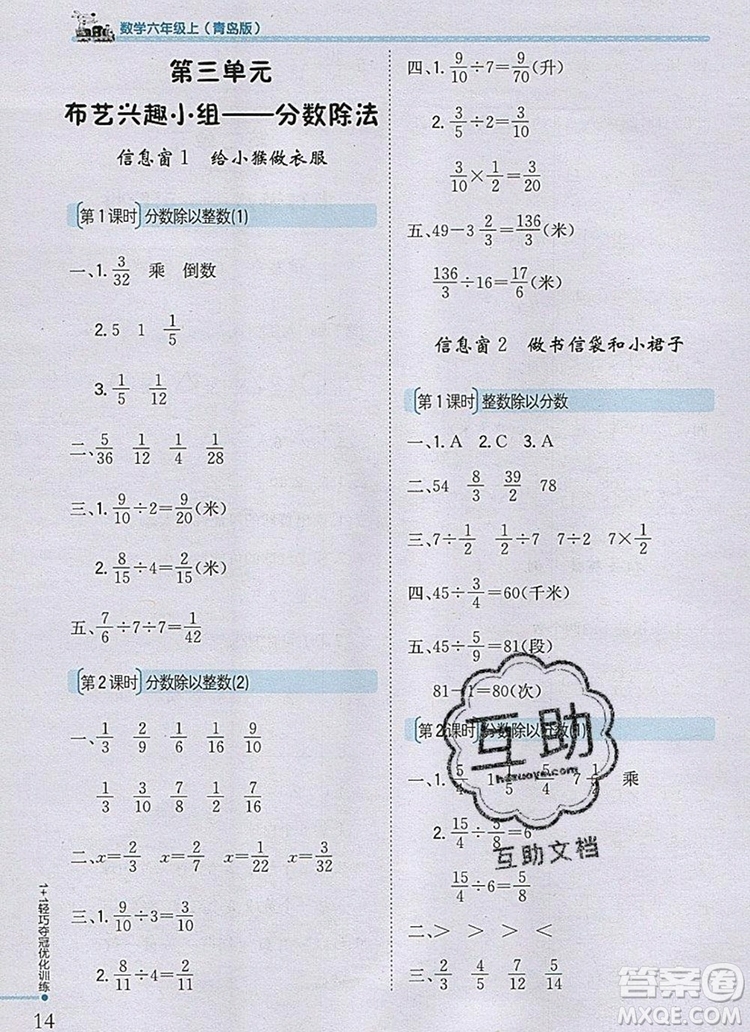 数学六年级上（青岛版）
第三单元
布艺兴趣小组——分数除法
信息窗1 给小猴做衣服
第1课时 分数除以整数(1)
一、1. 3/32 乘 倒数
2. 5 1 1/5
3. 1/5 1/12
二、5/36 1/12 1/4 1/28
三、1. 9/10÷2=9/20(米)
2. 8/15÷4=2/15(米)
五、7/6÷7÷7=1/42
第2课时 分数除以整数(2)
一、1/3 2/9 1/6 1/16 9/10
1/3 3/10 7/8 1/2 7/16
二、x=2/3 x=2/7 x=1/22 x=3/32
三、1. 9/10÷3=3/10
2. 8/11÷4=2/11
四、1. 9/10÷7=9/70(升)
2. 3/5÷2=3/10
3/10×1/2=3/20
五、49-3 2/3=136/3(米)
136/3÷16=17/6(米)
信息窗2 做书信袋和小裙子
第1课时 整数除以分数
一、1. A 2. C 3. A
二、54 8/3 39/2 78
三、7÷1/2 1/2÷7 7÷2 7×1/2
四、45÷3/4=60(千米)
五、45÷5/9=81(段)
81-1=80(次)
第2课时 分数除以分数(1)
一、1. 5/4 1 5/4 7 1/2 乘
2. 15/4÷5/8=6
15/4÷6=5/8
二、> > < >
1+1轻巧夺冠优化训练
14
互助
互助文档
答案圈
MXQE.COM